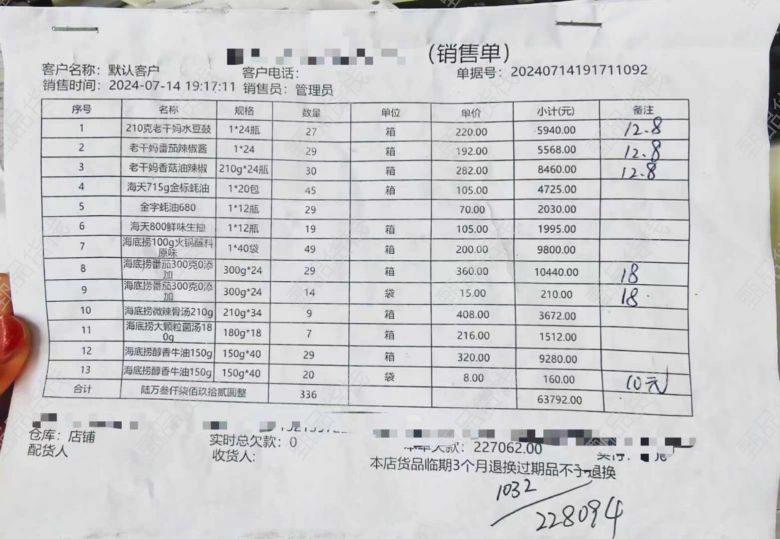 (销售单)
客户名称：默认客户 客户电话： 单据号：20240714191711092
销售时间：2024-07-14 19:17:11 销售员：管理员
序号 名称 规格 数量 单位 单价 小计(元) 备注
1 210克老干妈水豆鼓 1*24瓶 27 箱 220.00 5940.00 12.8
2 老干妈番茄辣椒酱 1*24 29 箱 192.00 5568.00 12.8
3 老干妈香菇油辣椒 210g*24瓶 30 箱 282.00 8460.00 12.8
4 海天715g金标蚝油 1*20包 45 箱 105.00 4725.00
5 金字蚝油680 1*12瓶 29 70.00 2030.00
6 海天800鲜味生抽 1*12瓶 19 箱 105.00 1995.00
7 海底捞100g火锅蘸料原味 1*40袋 49 箱 200.00 9800.00
8 海底捞番茄300克0添加 300g*24 29 箱 360.00 10440.00 18
9 海底捞番茄300克0添加 300g*24 14 袋 15.00 210.00 18
10 海底捞微辣骨汤210g 210g*34 9 箱 408.00 3672.00
11 海底捞大颗粒菌汤180g 180g*18 7 箱 216.00 1512.00
12 海底捞醇香牛油150g 150g*40 29 箱 320.00 9280.00
13 海底捞醇香牛油150g 150g*40 20 袋 8.00 160.00 10元
合计 陆万叁仟柒佰玖拾贰圆整 336 63792.00
仓库：店铺 实时总欠款：0 227062.00
配货人 收货人： 本店货品临期3个月退换过期品不予退换
1032
228094